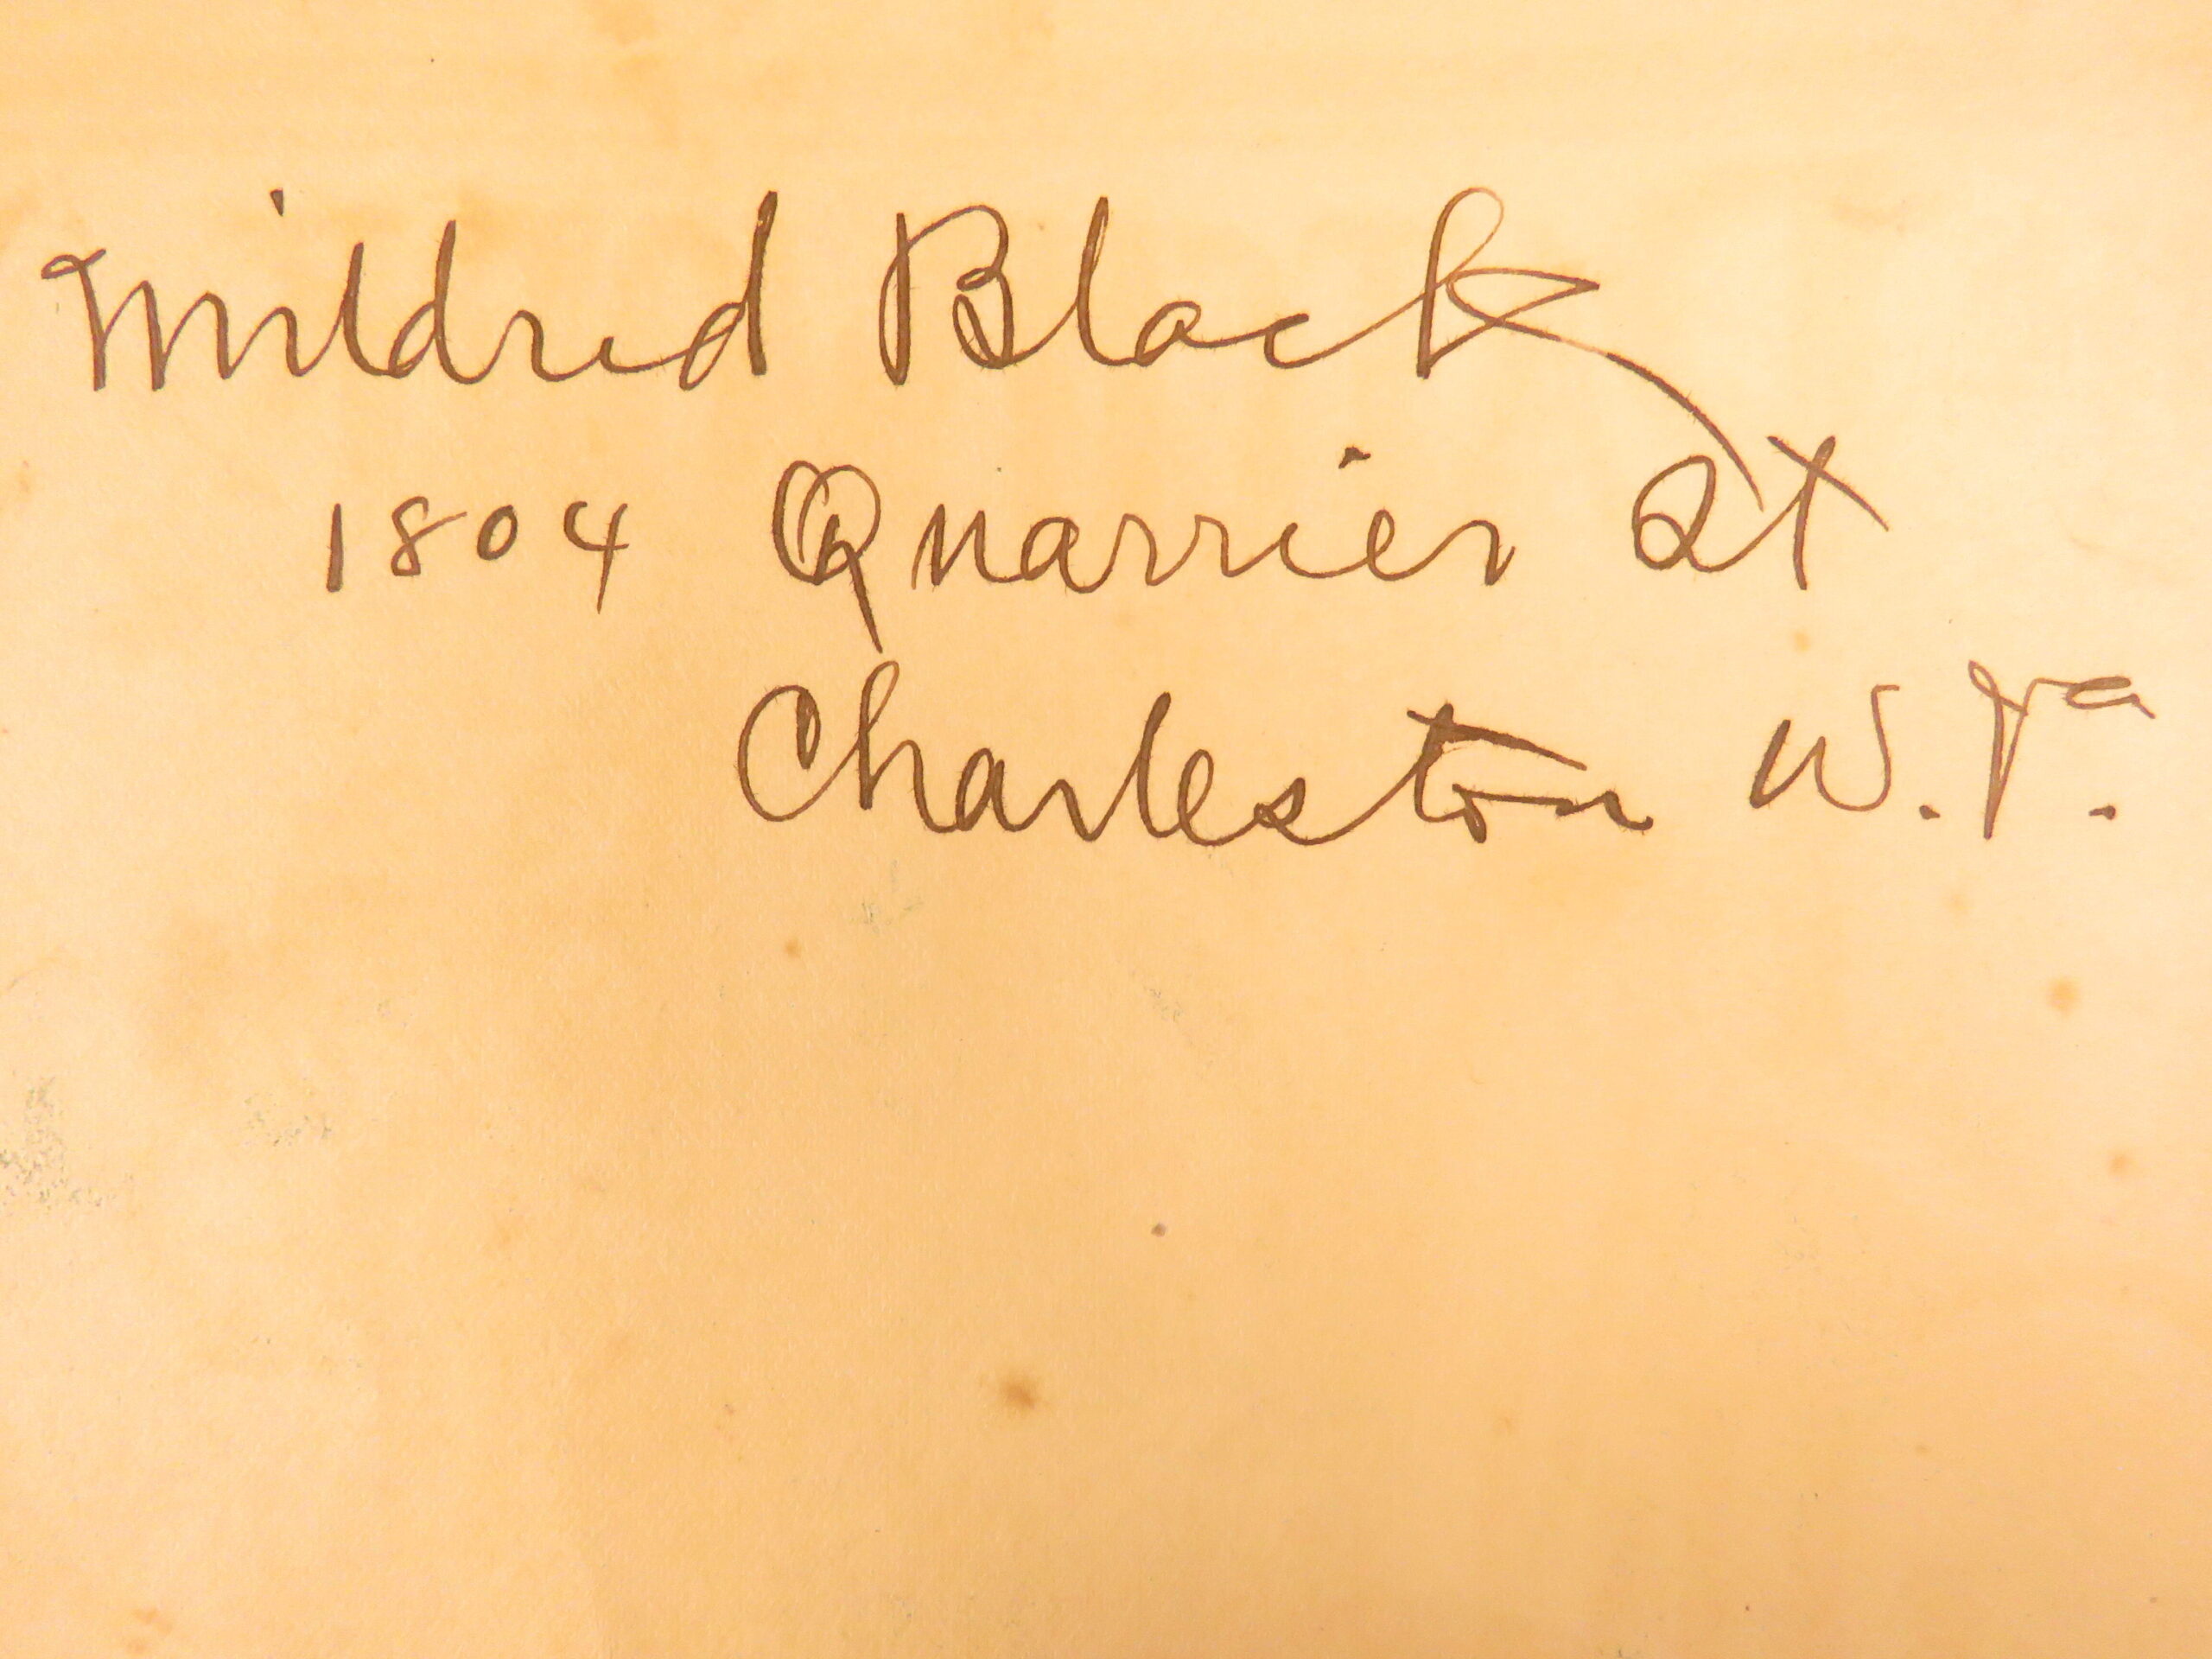 Mildred Black
1804 Quarrier St
Charleston W. Va.